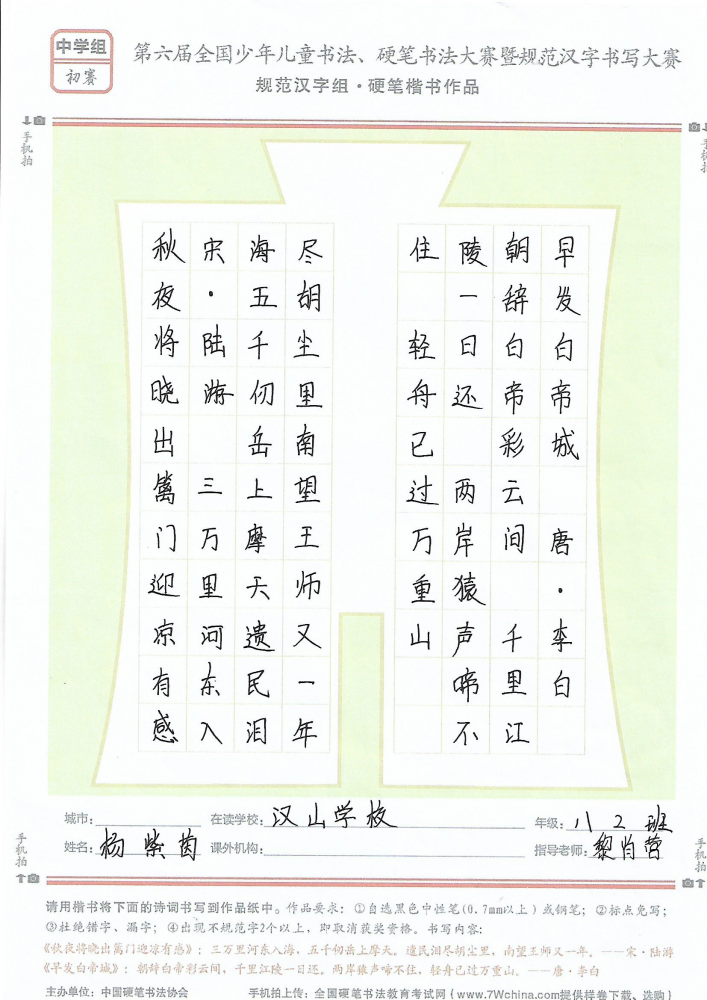 中学组
初赛
第六届全国少年儿童书法、硬笔书法大赛暨规范汉字书写大赛
规范汉字组·硬笔楷书作品
手机拍
手机拍
秋夜将晓出篱门迎凉有感
宋·陆游 三万里河东入
海五千仞岳上摩天遗民泪
尽胡尘里南望王师又一年
早发白帝城 唐·李白
朝辞白帝彩云间 千里江
陵一日还 两岸猿声啼不
住 轻舟已过万重山
城市: 在读学校: 汉山学校 年级: 八 2 班
姓名: 杨紫茵 课外机构: 指导老师:
手机拍
手机拍
请用楷书将下面的诗词书写到作品纸中。作品要求：①自选黑色中性笔(0.7mm以上)或钢笔；②标点免写；
③杜绝错字、漏字；④出现不规范字2个以上，即取消获奖资格。书写内容：
《秋夜将晓出篱门迎凉有感》：三万里河东入海，五千仞岳上摩天。遗民泪尽胡尘里，南望王师又一年。——宋·陆游
《早发白帝城》：朝辞白帝彩云间，千里江陵一日还。两岸猿声啼不住，轻舟已过万重山。——唐·李白
主办单位：中国硬笔书法协会 手机拍上传：全国硬笔书法教育考试网{www.7Wchina.com提供样卷下载、选购}